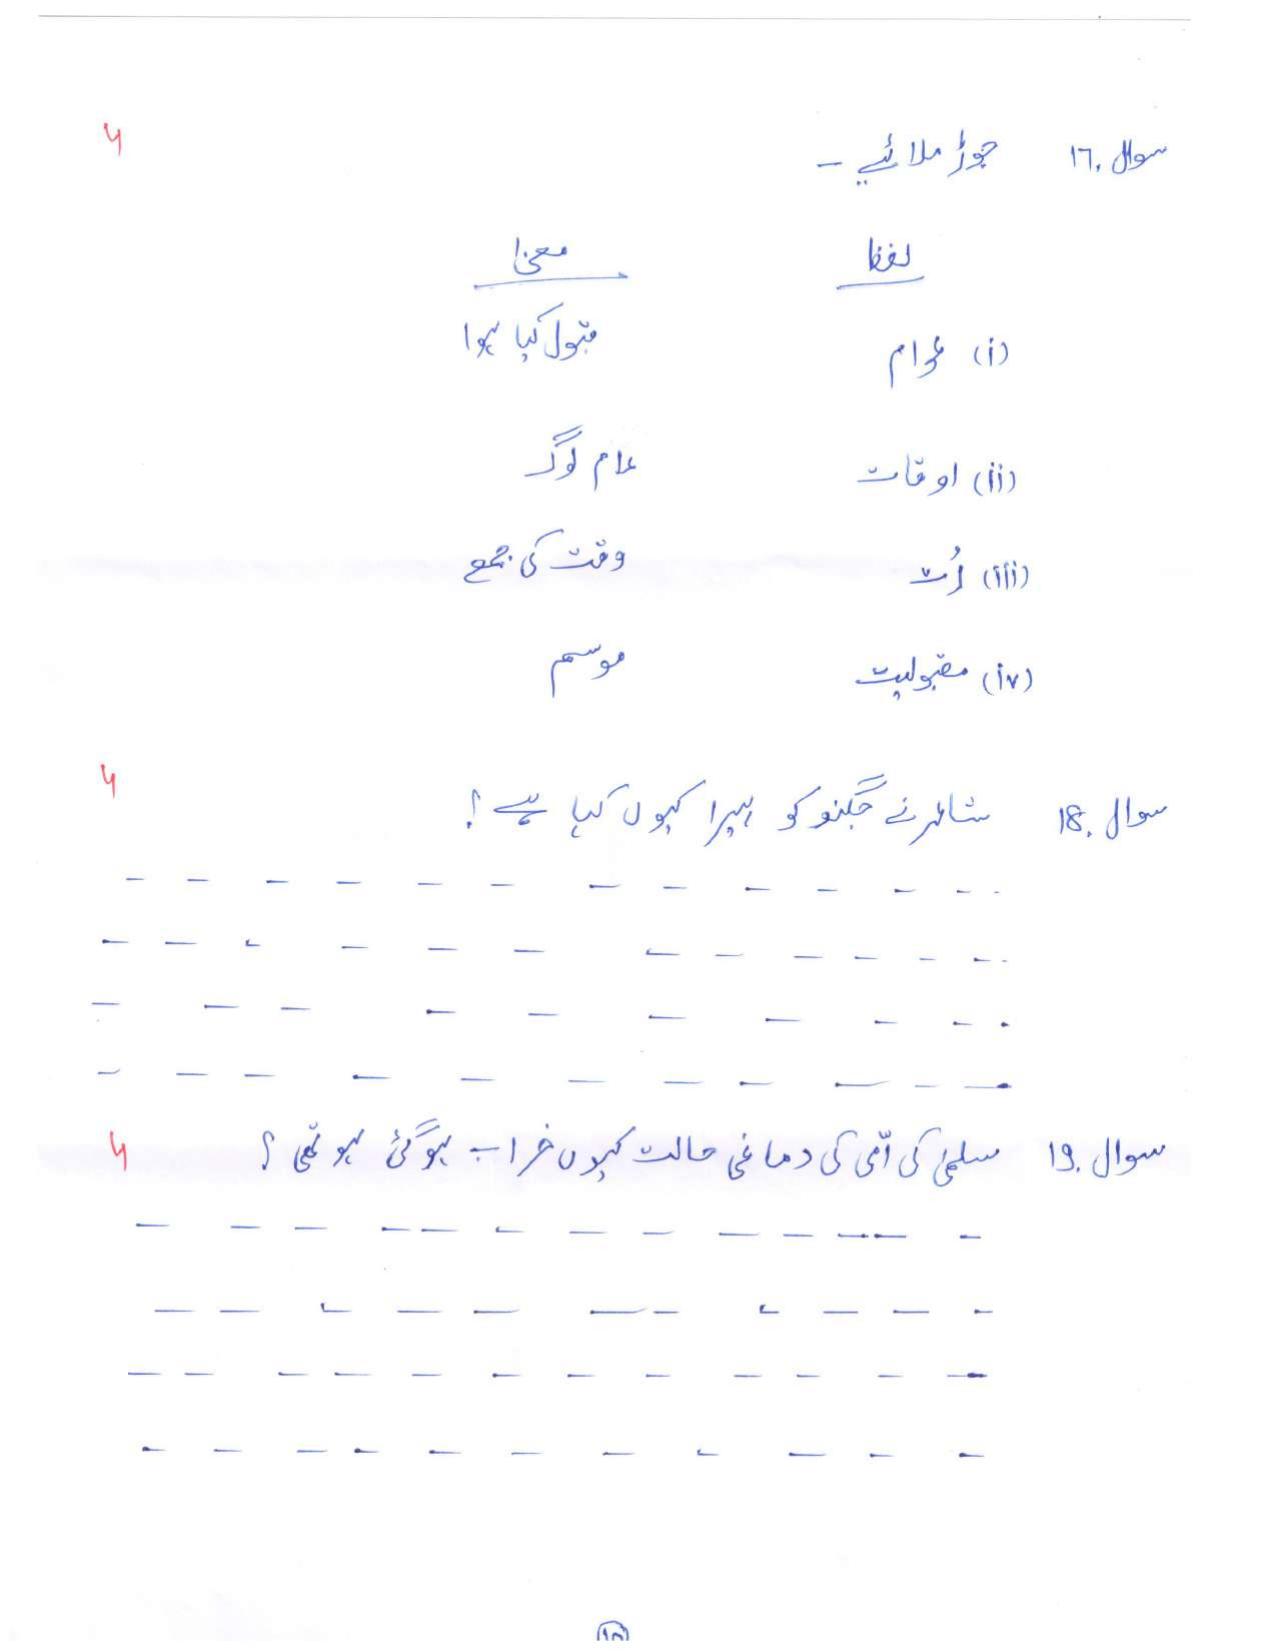 سوال .١٦ جوڑ ملائیے - ۴
لفظ معنیٰ
(i) عوام قبول کیا ہوا
(ii) اوقات عام لوگ
(iii) رُت وقت کی جمع
(iv) مقبولیت موسم
سوال .18 شاعر نے جگنو کو ہیرا کیوں کہا ہے؟ ۴
سوال .19 سلمیٰ کی امّی کی دماغی حالت کیوں خراب ہوگئ ہو تھی؟ ۴